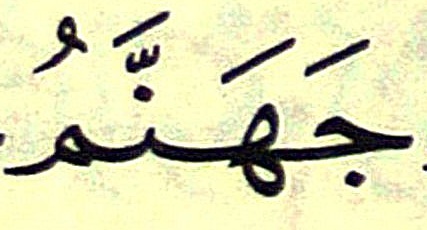 جَهَنَّمُ